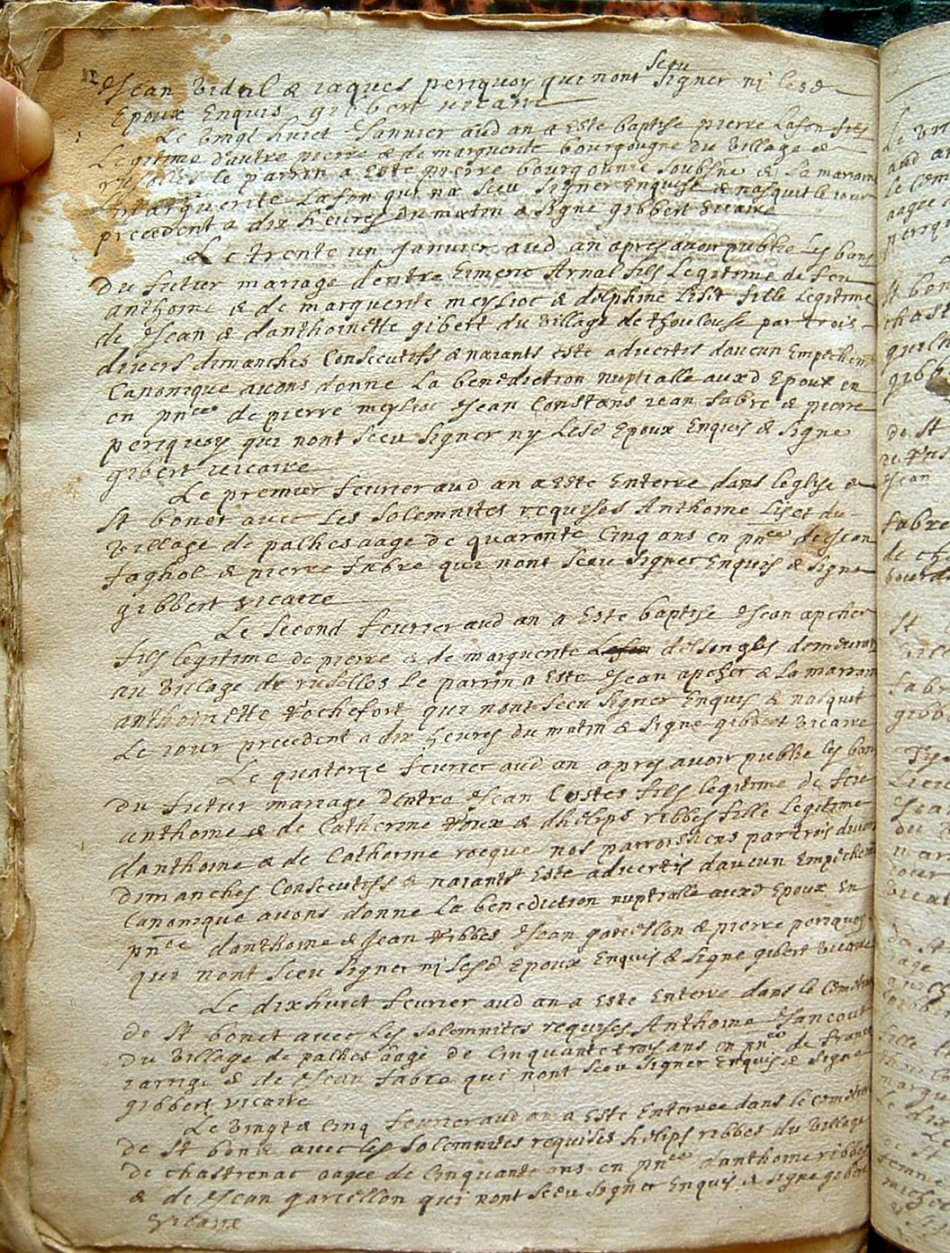 Jean Vidal & iaques periquoy qui nont sceu signer ni lesd
Epoux Enquis gibbert vicaire
Le vingt huict Jannier aud an a Este baptise pierre Lafon fils
Legitime d'autre pierre & de marguerite bourgougne du village de
le parrin a Este pierre bourgounie & La marraine
marguerite Lafon qui na sceu signer Enquise & nasquit le iour
precedent a dix heures du matin & signe gibbert vicaire
Le trente un Janvier aud an apres avoir publie Les bans
Du futur mariage dentre Eimeric Arnal fils Legitime de feu
anthoine & de marguerite meyssioc & dolphine Liset fille Legitime
de Jean & danthoinette gibert du village de thoulouse par trois
divers dimanches Consecutifs & naiants este advertis daucun Empechem
Canonique avons donne La benediction nuptialle auxd Epoux en
en pnce de pierre meyssioc Jean Constans iean fabre & pierre
periquoy qui nont sceu signer ny Lesd Epoux Enquis & signe
gibert vicaire
Le premier fevrier aud an a Este Enterre dans leglise de
St bonet avec Les solemnites requises Anthoine Liset du
village de palhes aage de quarante Cinq ans en pnce de Jean
faghol & pierre fabre qui nont sceu signer Enquis & signe
gibbert vicaire
Le second fevrier aud an a Este baptise Jean apcher
fils legitime de pierre & de marguerite desSongles demeurant
au village de ruselles Le parrin a Este Jean apcher & La marraine
anthoinette rochefort qui nont sceu signer Enquis & nasquit
Le iour precedent a dix heures du matin & signe gibbert vicaire
Le quatorze fevrier aud an apres avoir publie les bans
du futur mariage dentre Jean Costes fils legitime de feu
anthoine & de Catherine & dhelips ribbes fille Legitime
danthoine & de Catherine rocque nos parroissiens par trois divers
dimanches Consecutifs & naiants Este advertis daucun Empechem
Canonique avons donne La benediction nuptialle auxd Epoux En
pnce danthoine & Jean ribbes Jean garcellon & pierre periquoy
qui nont sceu signer ni Lesd Epoux Enquis & signe gibert vicaire
Le dixhuict fevrier aud an a Este Enterre dans le Cemetiere
de St bonet avec Les solemnites requises Anthoine Jancourt
du village de palhes aage de Cinquante trois ans en pnce de francois
iarrige & de Jean fabre qui nont sceu signer Enquis & signe
gibbert vicaire
Le vingt & Cinq fevrier aud an a Este Enterree dans le cemetiere
de St bonet avec les solemnites requises helips ribbes du village
de chastrenac aagee de Cinquante ans en pnce danthoine ribbes
& de Jean garcellon qui nont sceu signer Enquis & signe gibert
vicaire